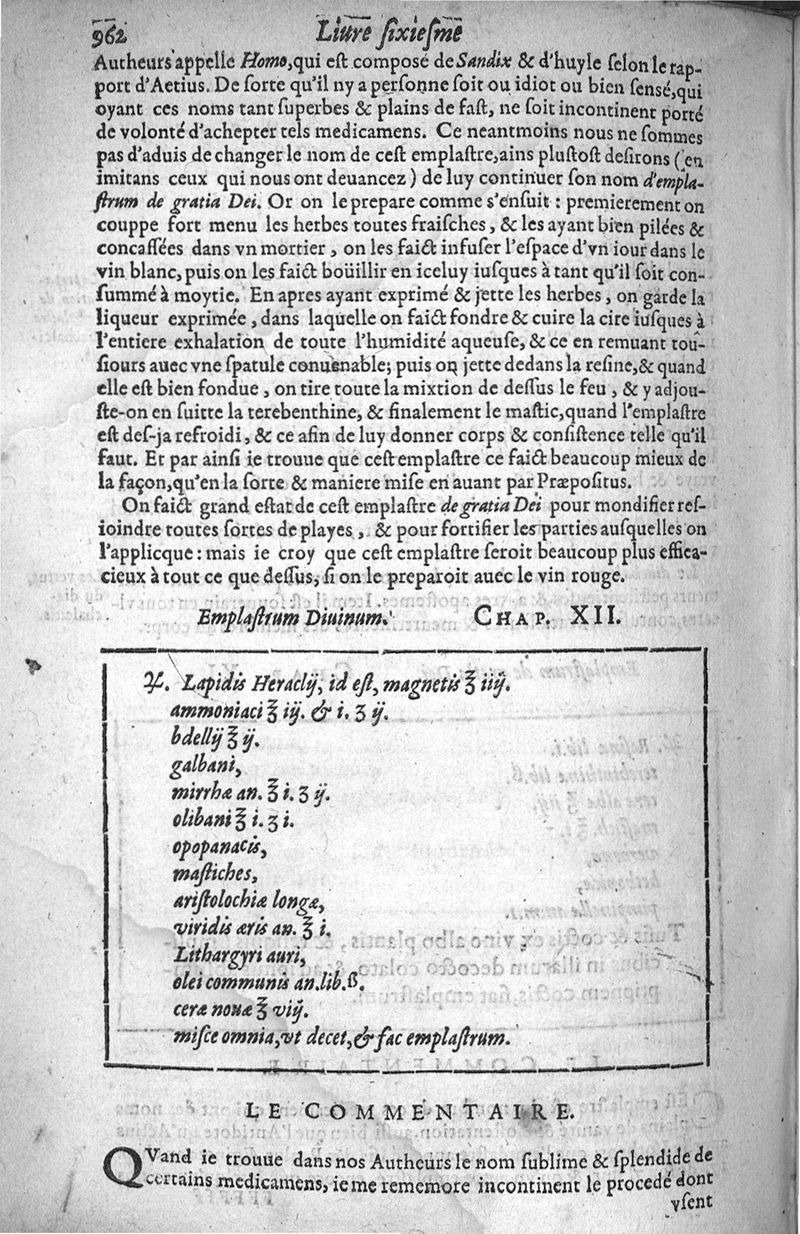 962 Liure sixiesme
Autheurs appelle Homo, qui est composé de Sandix & d'huyle selon le rap-
port d'Aetius. De sorte qu'il ny a personne soit ou idiot ou bien sensé, qui
oyant ces noms tant superbes & plains de fast, ne soit incontinent porté
de volonté d'achepter tels medicamens. Ce neantmoins nous ne sommes
pas d'aduis de changer le nom de cest emplastre, ains plustost desirons (en
imitans ceux qui nous ont deuancez) de luy continuer son nom d'empla-
strum de gratia Dei. Or on le prepare comme s'ensuit : premierement on
couppe fort menu les herbes toutes fraisches, & les ayant bien pilées &
concassées dans vn mortier, on les faict infuser l'espace d'vn iour dans le
vin blanc, puis on les faict boüillir en iceluy iusques à tant qu'il soit con-
summé à moytie. En apres ayant exprimé & jette les herbes, on garde la
liqueur exprimée, dans laquelle on faict fondre & cuire la cire iusques à
l'entiere exhalation de toute l'humidité aqueuse, & ce en remuant toû-
siours auec vne spatule conuenable; puis on jette dedans la resine, & quand
elle est bien fondue, on tire toute la mixtion de dessus le feu, & y adjou-
ste-on en suitte la terebenthine, & finalement le mastic, quand l'emplastre
est des-ja refroidi, & ce afin de luy donner corps & consistence telle qu'il
faut. Et par ainsi ie trouue que cest emplastre ce faict beaucoup mieux de
la façon, qu'en la sorte & maniere mise en auant par Præpositus.
On faict grand estat de cest emplastre de gratia Dei pour mondifier res-
ioindre toutes sortes de playes, & pour fortifier les parties ausquelles on
l'applicque : mais ie croy que cest emplastre seroit beaucoup plus effica-
cieux à tout ce que dessus, si on le preparoit auec le vin rouge.
Emplastrum Diuinum. CHAP. XII.
♃. Lapidis Heraclij, id est, magnetis ℥ iiij.
ammoniaci ℥ iij. & i. ʒ ij.
bdellij ℥ ij.
galbani,
mirrhæ an. ℥ i. ʒ ij.
olibani ℥ i. ʒ i.
opopanacis,
mastiches,
aristolochiæ longæ,
viridis æris an. ℥ i.
Lithargyri auri,
olei communis an. lib. ß.
ceræ nouæ ℥ viij.
misce omnia, vt decet, & fac emplastrum.
LE COMMENTAIRE.
QVand ie trouue dans nos Autheurs le nom sublime & splendide de
certains medicamens, ie me rememore incontinent le procedé dont
vsent